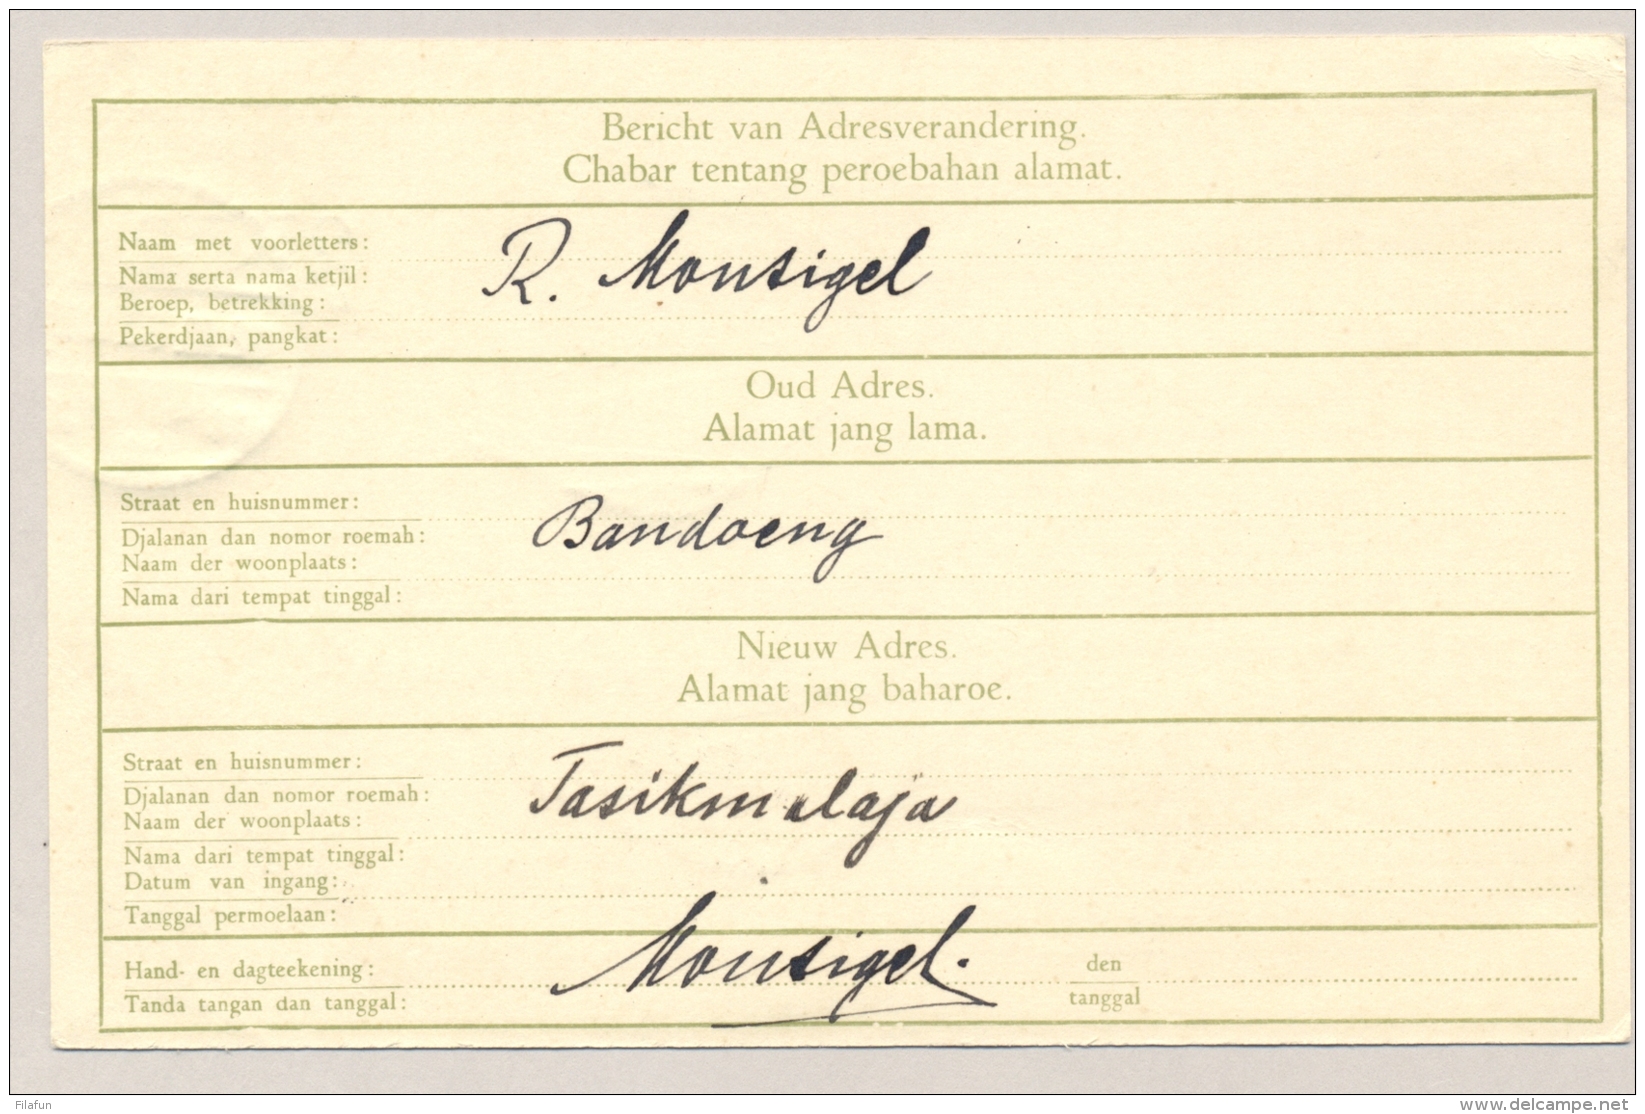 Bericht van Adresverandering.
Chabar tentang peroebahan alamat.
Naam met voorletters:
Nama serta nama ketjil:
R. Monsigel
Beroep, betrekking:
Pekerdjaan, pangkat:
Oud Adres.
Alamat jang lama.
Straat en huisnummer:
Djalanan dan nomor roemah:
Bandoeng
Naam der woonplaats:
Nama dari tempat tinggal:
Nieuw Adres.
Alamat jang baharoe.
Straat en huisnummer:
Djalanan dan nomor roemah:
Tasikmalaja
Naam der woonplaats:
Nama dari tempat tinggal:
Datum van ingang:
Tanggal permoelaan:
Hand- en dagteekening:
Tanda tangan dan tanggal:
Monsigel.
den
tanggal
Filafun
delcampe.net